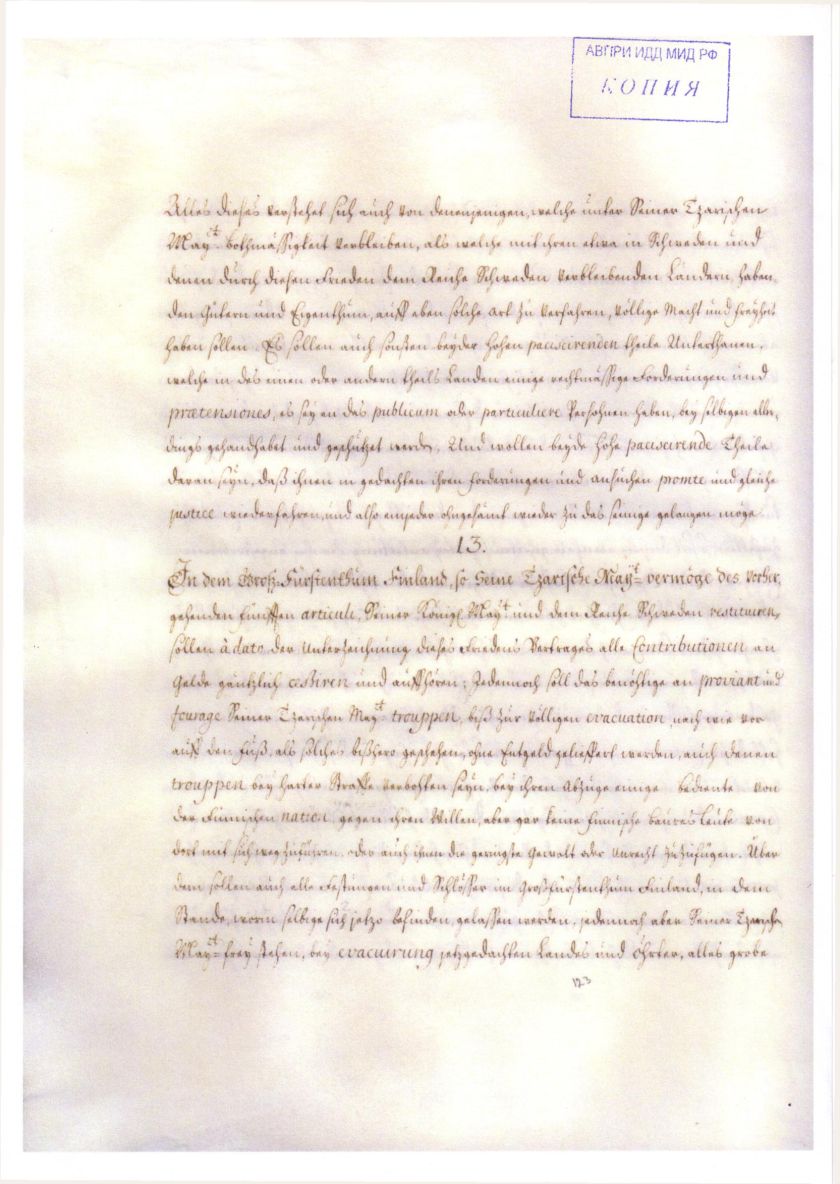 АВПРИ ИДД МИД РФ
КОПИЯ
Alles dieses verstehet sich auch von denenjenigen, welche unter Seiner Tzarischen
Mayᵗ bothmässigkeit verbleiben, als welche mit ihren etwa in Schweden und
denen durch diesen Frieden dem Reiche Schweden verbleibenden Ländern, haben-
den Gütern und Eigenthum, auff eben solche art zu verfahren, völlige Macht und freyheit
haben sollen. Es sollen auch sonsten beyder hohen paciscirenden theile Unterthanen,
welche in des einen oder andern theils Landen einige rechtmässige Forderungen und
prætensiones, es sey an das publicum oder particuliere Persohnen haben, bey selbigen aller-
dings gehandhabet und geschützet werden, Und wollen beyde hohe paciscirende Theile
daran seyn, daß ihnen in gedachten ihren forderungen und ansuchen promte und gleiche
justice wiederfahren, und also ein jeder ohngesäumt wieder zu das seinige gelangen möge
13.
In dem Groß-Fürstenthum Finland, so Seine Tzarische Mayᵗ vermöge des vorher-
gehenden fünfften articuli, Seiner Königl Mayᵗ und dem Reiche Schweden restituiren,
sollen à dato der Unterzeichnung dieses Friedens Vertrages alle Contributionen an
Gelde gäntzlich cessiren und auffhören; Jedennoch soll das benöhtige an proviant und
fourage Seiner Tzarischen Mayᵗ trouppen, biß zur völligen evacuation, nach wie vor
auff den fuß, als solches bißhero geschehen, ohne Entgeld geliefert werden, auch denen
trouppen bey harter Straffe verbohten seyn, bey ihren Abzuge einige bediente von
der Finnischen nation, gegen ihren Willen, aber gar keine finnische baurs leute von
dort mit sich weg zuführen, oder auch ihnen die geringste Gewalt oder Unrecht zuzufügen. Über
dem sollen auch alle Festungen und Schlösser im Großfürstenthum Finland, in dem
Stande, worin selbige sich jetzo befinden, gelassen werden, jedennoch aber Seiner Tzarischen
Mayᵗ frey stehen, bey evacuirung jetzgedachten Landes und öhrter, alles grobe
123